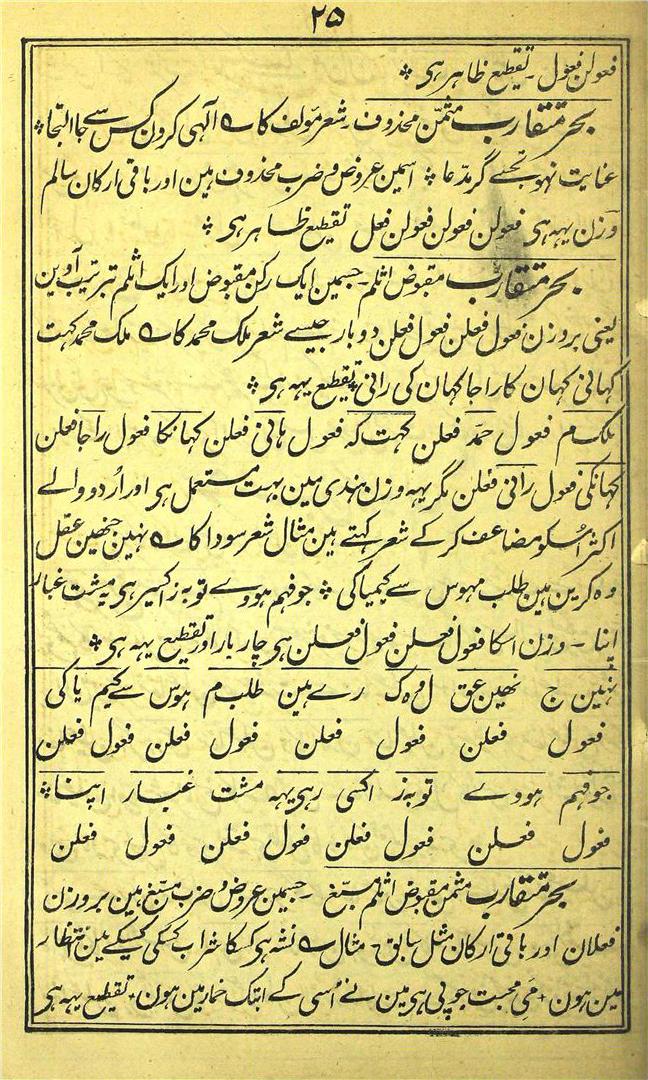 ۲۵
فعولن فعول ۔ تقطیع ظاہر ہی ؞
بحر متقارب مثمّن محذوف ۔ شعر مؤلف کا ؎ آلہی کرون کس سے جا التجا ؞
عنایت نہو تجسے گر مدّعا ؞ اسمین عروض و ضرب محذوف ہین اور باقی ارکان سالم
وزن یہہ ہی فعولن فعولن فعولن فعل تقطیع ظاہر ہی ؞
بحر متقارب مقبوض اثلم ۔ جسمین ایک رکن مقبوض اور ایک اثلم تبرتیب آوین
یعنی بروزن فعول فعلن فعول فعلن دو بار جیسے شعر ملک محمد کا ؎ ملک محمد کہت
کہانی کہان کا راجا کہان کی رانی ؞ تقطیع یہہ ہی ؞
ملک م فعول حمّد فعلن کہت کہ فعول ہانی فعلن کہا نکا فعول راجا فعلن
کہانکی فعول رانی فعلن مگر یہہ وزن ہندی مین بہت مستعمل ہی اور اُردو والے
اکثر اُسکو مضاعف کر کے شعر کہتے ہین مثال شعر سودا کا ؎ نہین جنھین عقل
وہ کرین ہین طلب مہوس سے کیمیا کی ؞ جو فہم ہووے تو بہ ز اکسیر ہی یہ مشت غبار
اپنا ۔ وزن اسکا فعول فعلن فعول فعلن ہی چار بار اور تقطیع یہہ ہی ؞
نہین ج نھین عق ل وہ ک رے ہین طلب م ہوس سے کیم یا کی
فعول فعلن فعول فعلن فعول فعلن فعول فعلن
جو فہم ہووے تو بہ ز اکسی رہی یہہ مشت غبار اپنا ؞
فعول فعلن فعول فعلن فعول فعلن فعول فعلن
بحر متقارب مثمن مقبوض اثلم مسبّغ ۔ جسمین عروض و ضرب مسبّغ ہین بروزن
فعلان اور باقی ارکان مثل سابق ۔ مثال ؎ نشہ ہی کسکا شراب کسکی کسیکے مین انتظار
مین ہون ۰ مَی محبت جو پی ہی مین نے اُسی کے ابتک خمار مین ہون ۰ تقطیع یہہ ہی